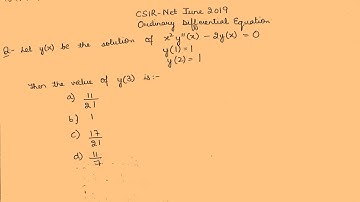 CSIR-Net June 2019
Ordinary Differential Equation
Q- Let y(x) be the solution of x²y''(x) - 2y(x) = 0
y(1) = 1
y(2) = 1
Then the value of y(3) is:-
a) 11/21
b) 1
c) 17/21
d) 11/7